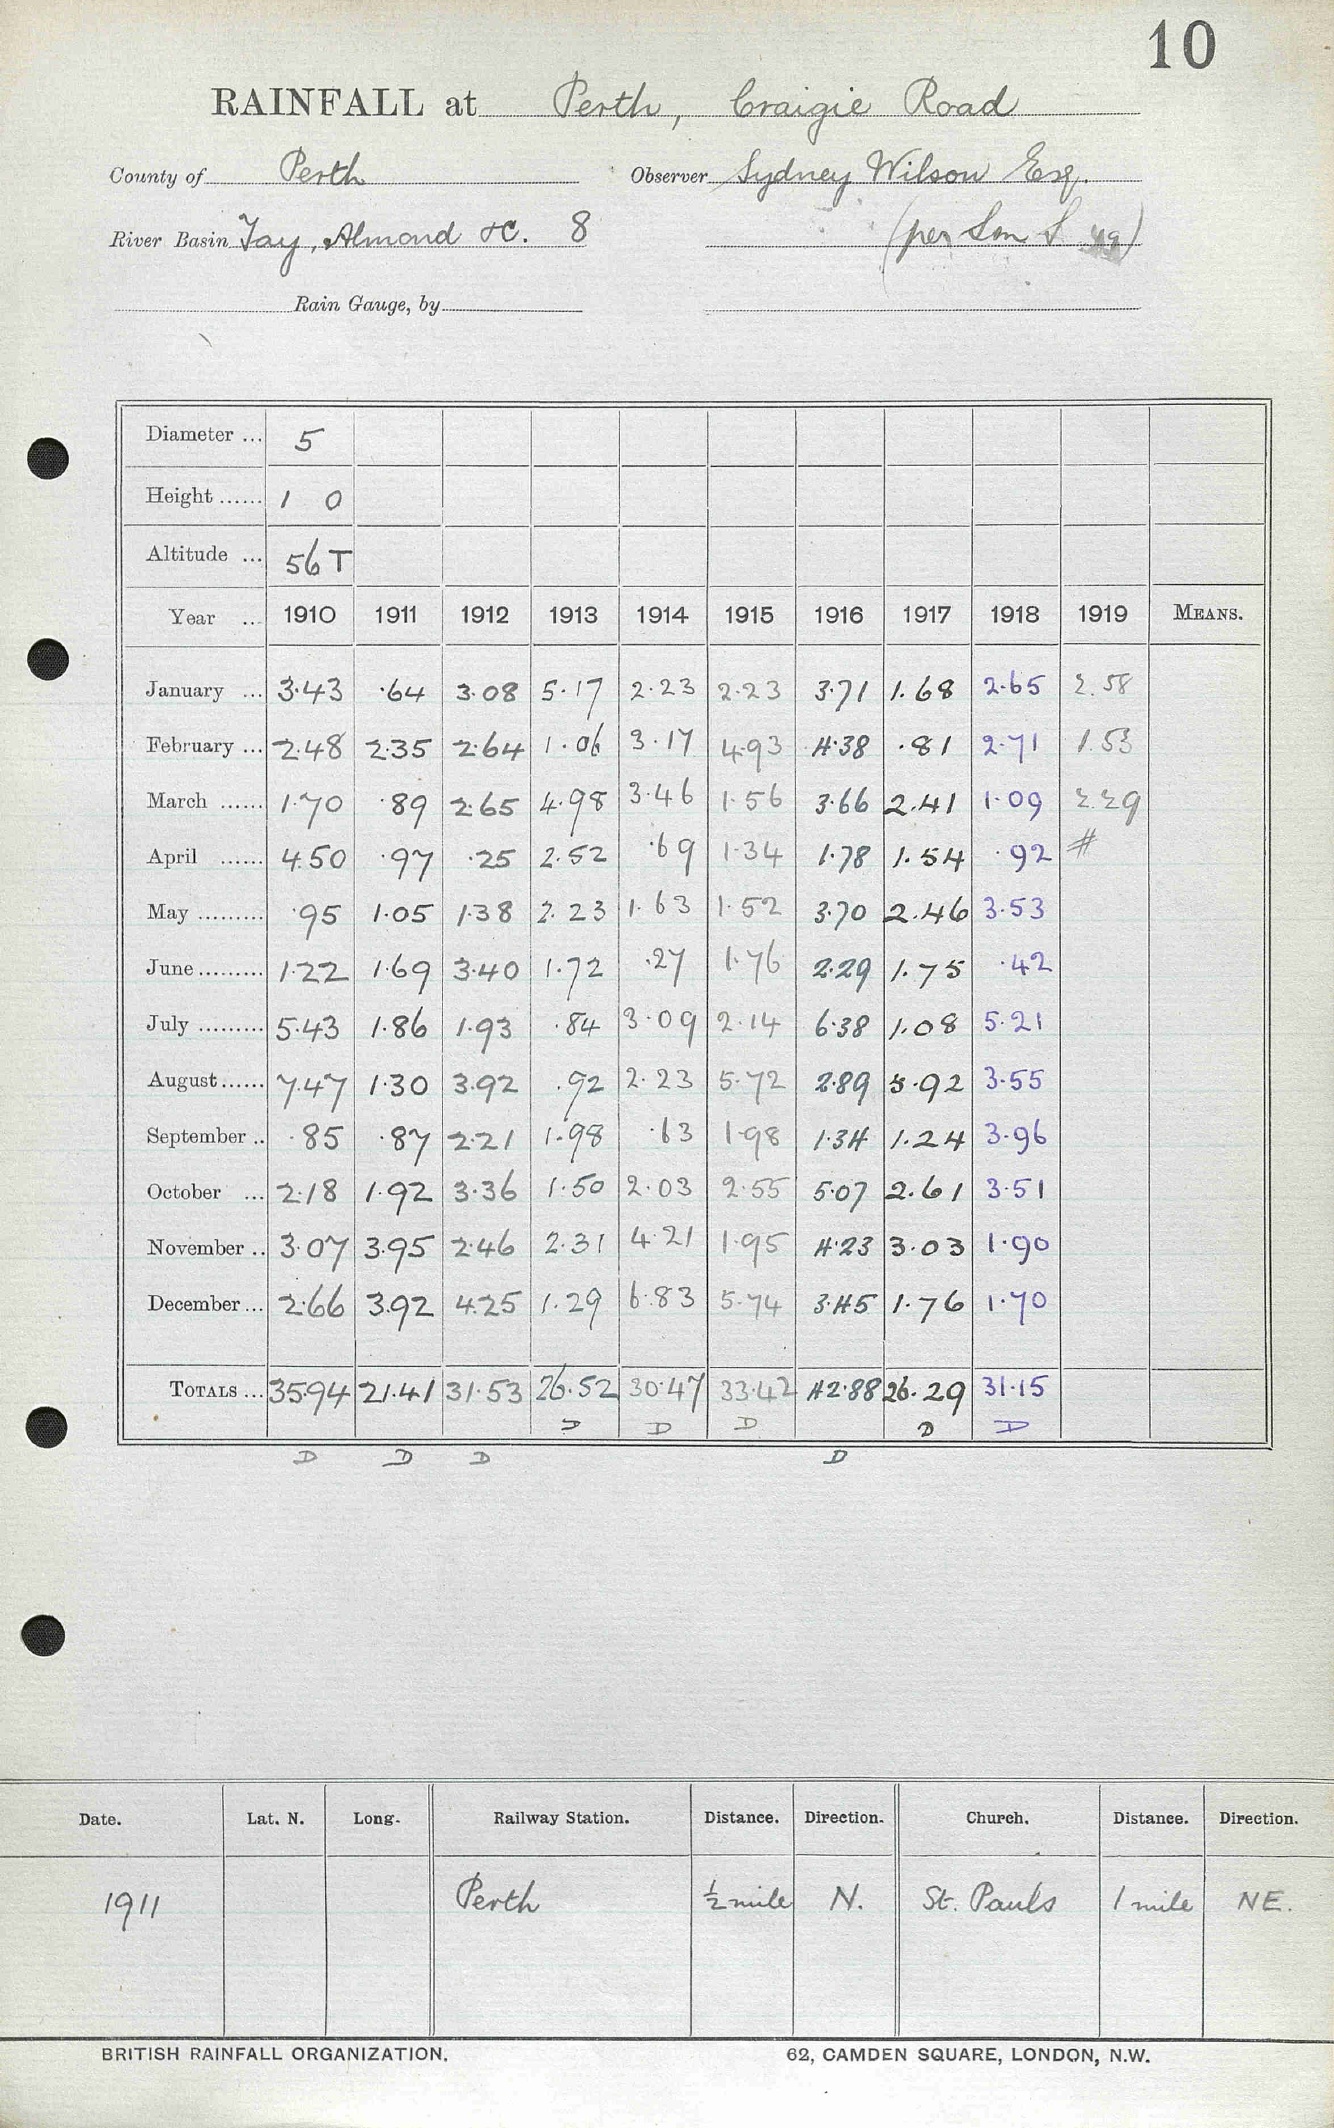 10
RAINFALL at Perth, Craigie Road
County of Perth Observer Sydney Wilson Esq.
River Basin Tay, Almond &C. 8 (per
Rain Gauge, by
Diameter ... 5
Height ...... 1 0
Altitude ... 56 T
Year ... 1910 1911 1912 1913 1914 1915 1916 1917 1918 1919 MEANS.
January ... 3.43 .64 3.08 5.17 2.23 2.23 3.71 1.68 2.65 2.58
February ... 2.48 2.35 2.64 1.06 3.17 4.93 4.38 .81 2.71 1.53
March ...... 1.70 .89 2.65 4.98 3.46 1.56 3.66 2.41 1.09 2.29
April ...... 4.50 .97 .25 2.52 .69 1.34 1.78 1.54 .92 #
May ......... .95 1.05 1.38 2.23 1.63 1.52 3.70 2.46 3.53
June ......... 1.22 1.69 3.40 1.72 .27 1.76 2.29 1.75 .42
July ......... 5.43 1.86 1.93 .84 3.09 2.14 6.38 1.08 5.21
August ...... 7.47 1.30 3.92 .92 2.23 5.72 2.89 5.92 3.55
September .. .85 .87 2.21 1.98 .63 1.98 1.34 1.24 3.96
October ... 2.18 1.92 3.36 1.50 2.03 2.55 5.07 2.61 3.51
November .. 3.07 3.95 2.46 2.31 4.21 1.95 4.23 3.03 1.90
December ... 2.66 3.92 4.25 1.29 6.83 5.74 3.45 1.76 1.70
TOTALS ... 35.94 21.41 31.53 26.52 30.47 33.42 42.88 26.29 31.15
D D D D D
D D D D
Date. Lat. N. Long. Railway Station. Distance. Direction. Church. Distance. Direction.
1911 Perth ½ mile N. St. Pauls 1 mile NE.
BRITISH RAINFALL ORGANIZATION. 62, CAMDEN SQUARE, LONDON, N.W.